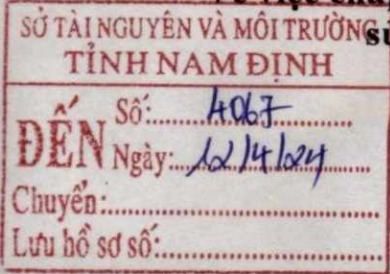 SỞ TÀI NGUYÊN VÀ MÔI TRƯỜNG
TỈNH NAM ĐỊNH
ĐẾN
Số:..... 4067.....
Ngày:..... 12/4/24.....
Chuyển:.....
Lưu hồ sơ số:.....